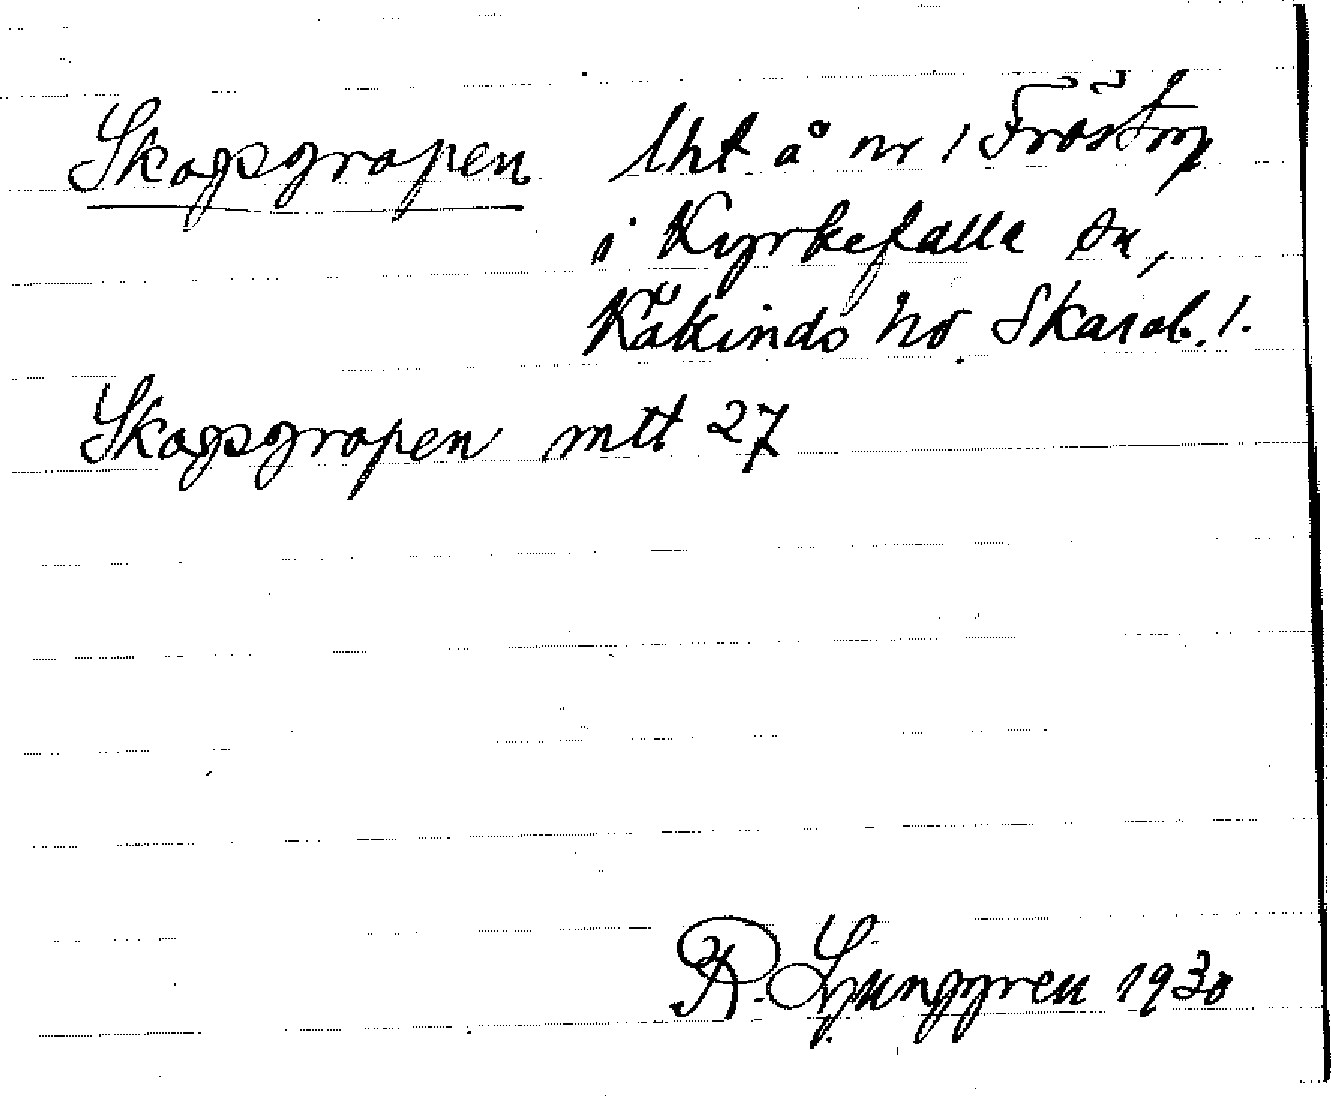 Skogsgropen lht å nr 1 Fröstorp
i Kyrkefalla sn,
Kåkinds hd. Skarab. l.
Skogsgropen mtt 27
R. Ljunggren 1930